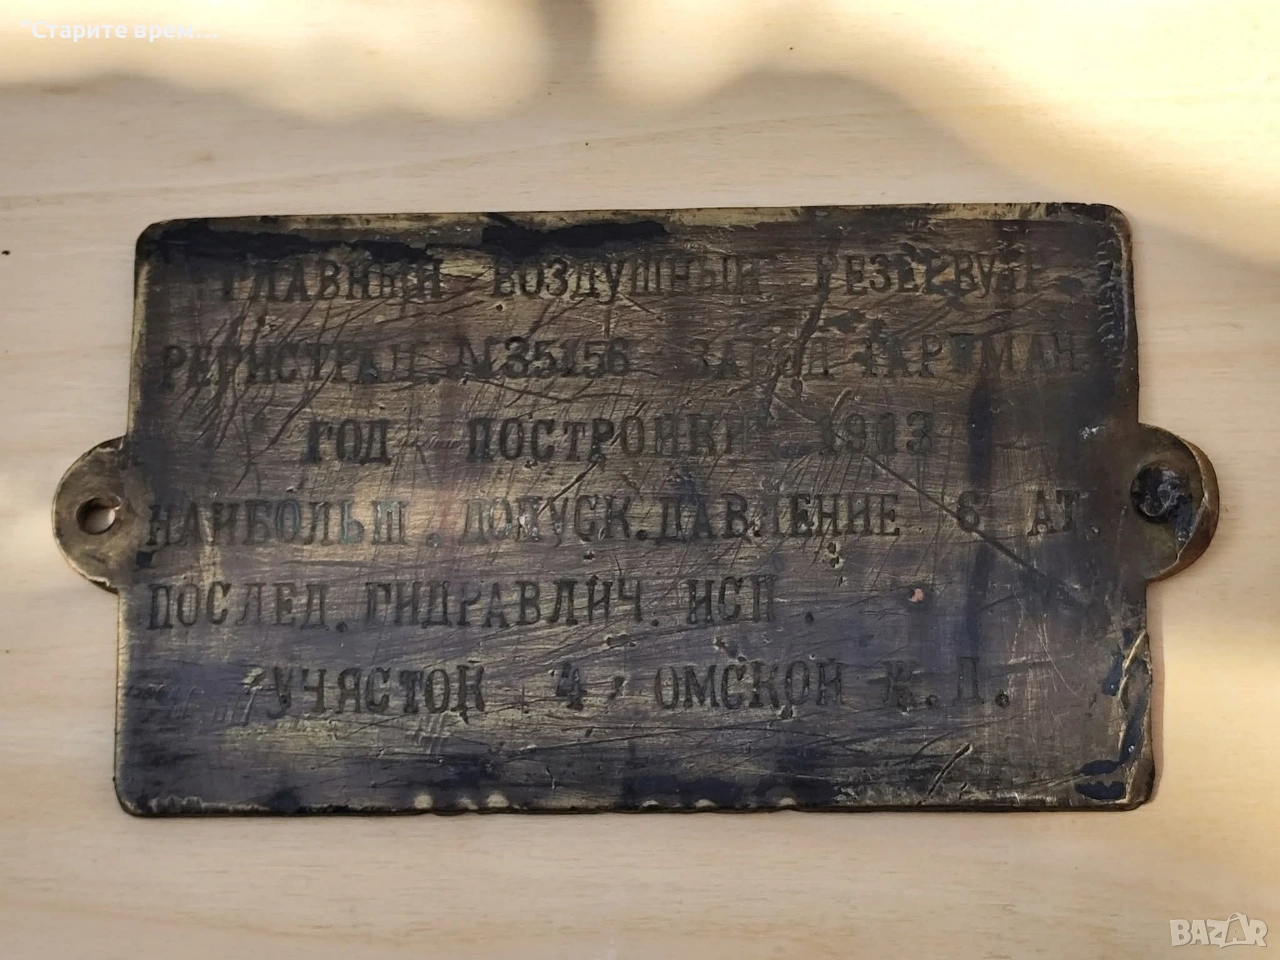 "Старите врем...
ГЛАВНЫЙ ВОЗДУШНЫЙ РЕЗЕРВУАР
РЕГИСТРАЦ. №35156 ЗАВОД ГАРТМАН.
ГОД ПОСТРОЙКИ 1913
НАИБОЛЬШ. ДОПУСК. ДАВЛЕНИЕ 6 АТ.
ПОСЛЕД. ГИДРАВЛИЧ. ИСП.
УЧАСТОК 4 ОМСКОЙ Ж.Д.
BAZAR